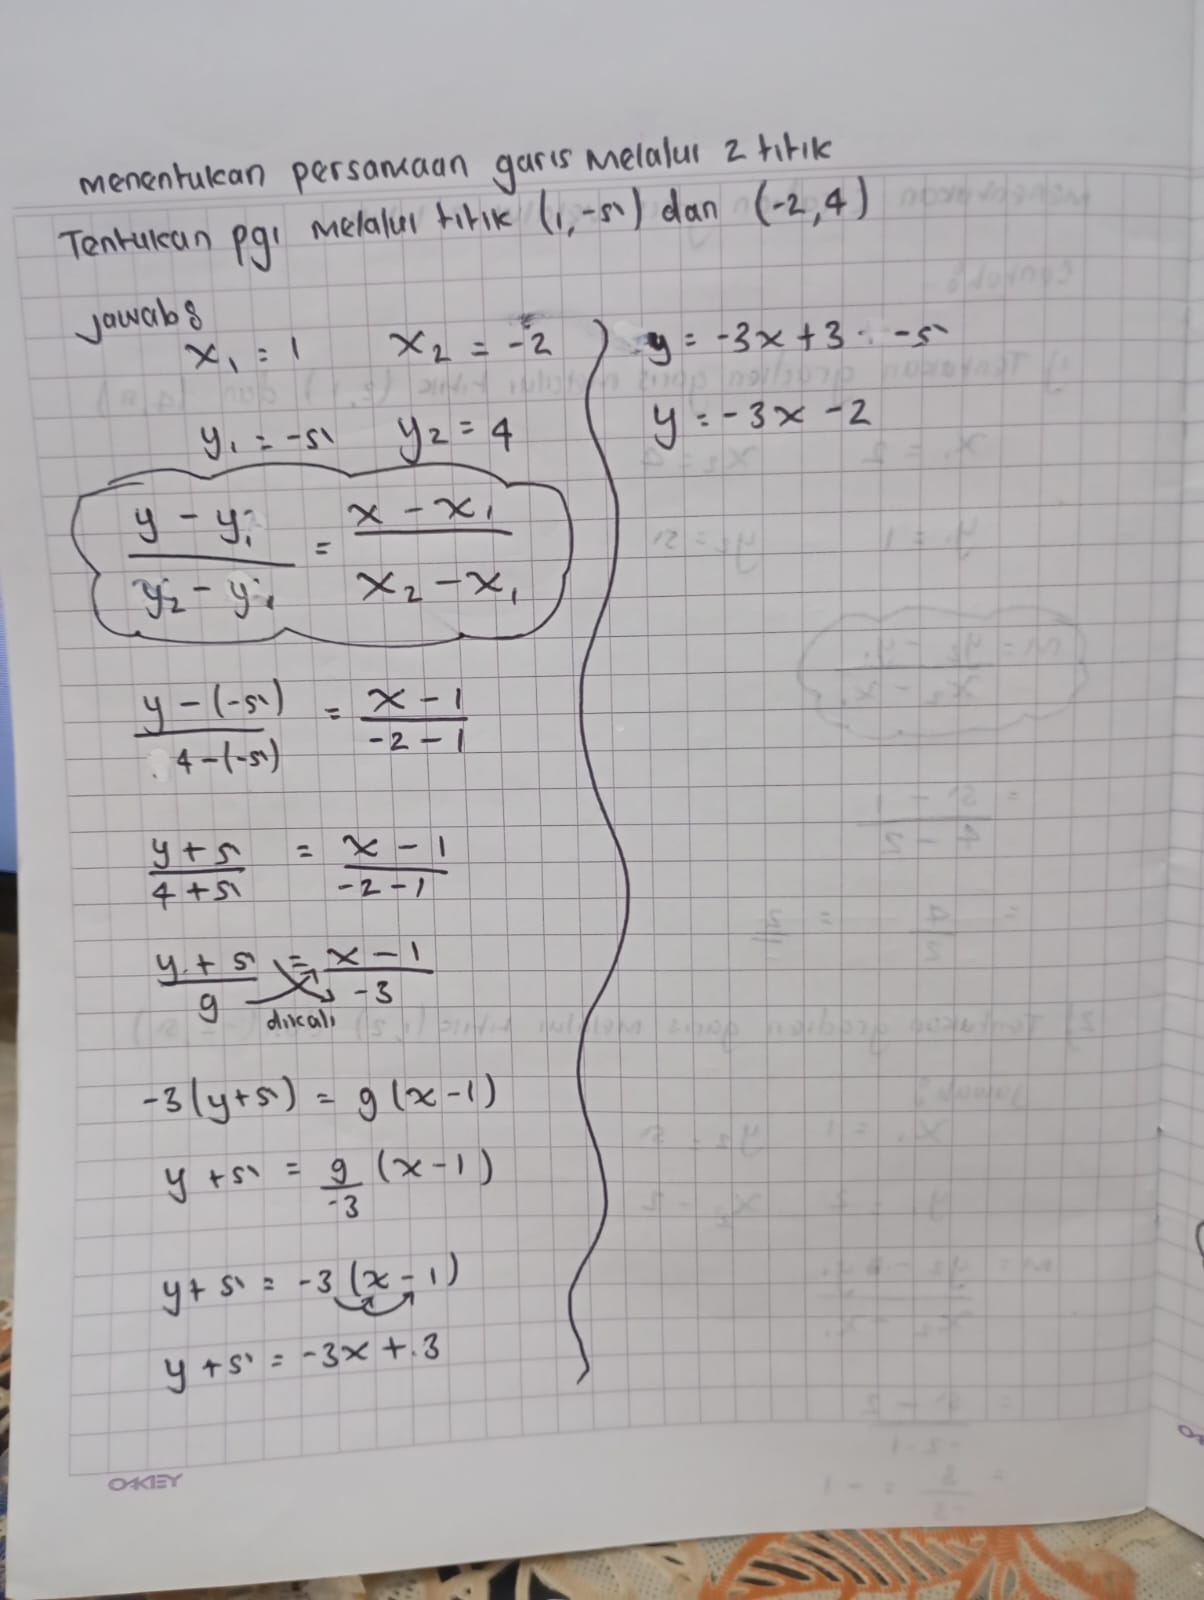 menentukan persamaan garis melalui 2 titik
Tentukan pg1 melalui titik (1,-5) dan (-2,4)
Jawab :
x₁ = 1 x₂ = -2
y₁ = -5 y₂ = 4
y - y₁ / y₂ - y₁ = x - x₁ / x₂ - x₁
y - (-5) / 4 - (-5) = x - 1 / -2 - 1
y + 5 / 4 + 5 = x - 1 / -2 - 1
y + 5 / 9 = x - 1 / -3
dikali
-3(y+5) = 9(x-1)
y + 5 = 9/-3 (x-1)
y + 5 = -3 (x-1)
y + 5 = -3x + 3
y = -3x + 3 - 5
y = -3x - 2
OAKLEY